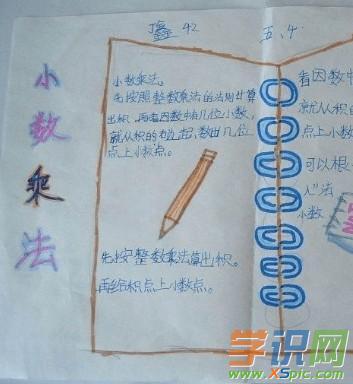 42
五、4
小数乘法
小数乘法。
先按照整数乘法的法则计算
出积,再看因数中有几位小数,
就从积的右边起,数出几位
点上小数点。
先按整数乘法算出积。
再给积点上小数点。
看因数中
就从积
点上小数
可以根
入”法
小数
学识网
www.XSpic.com